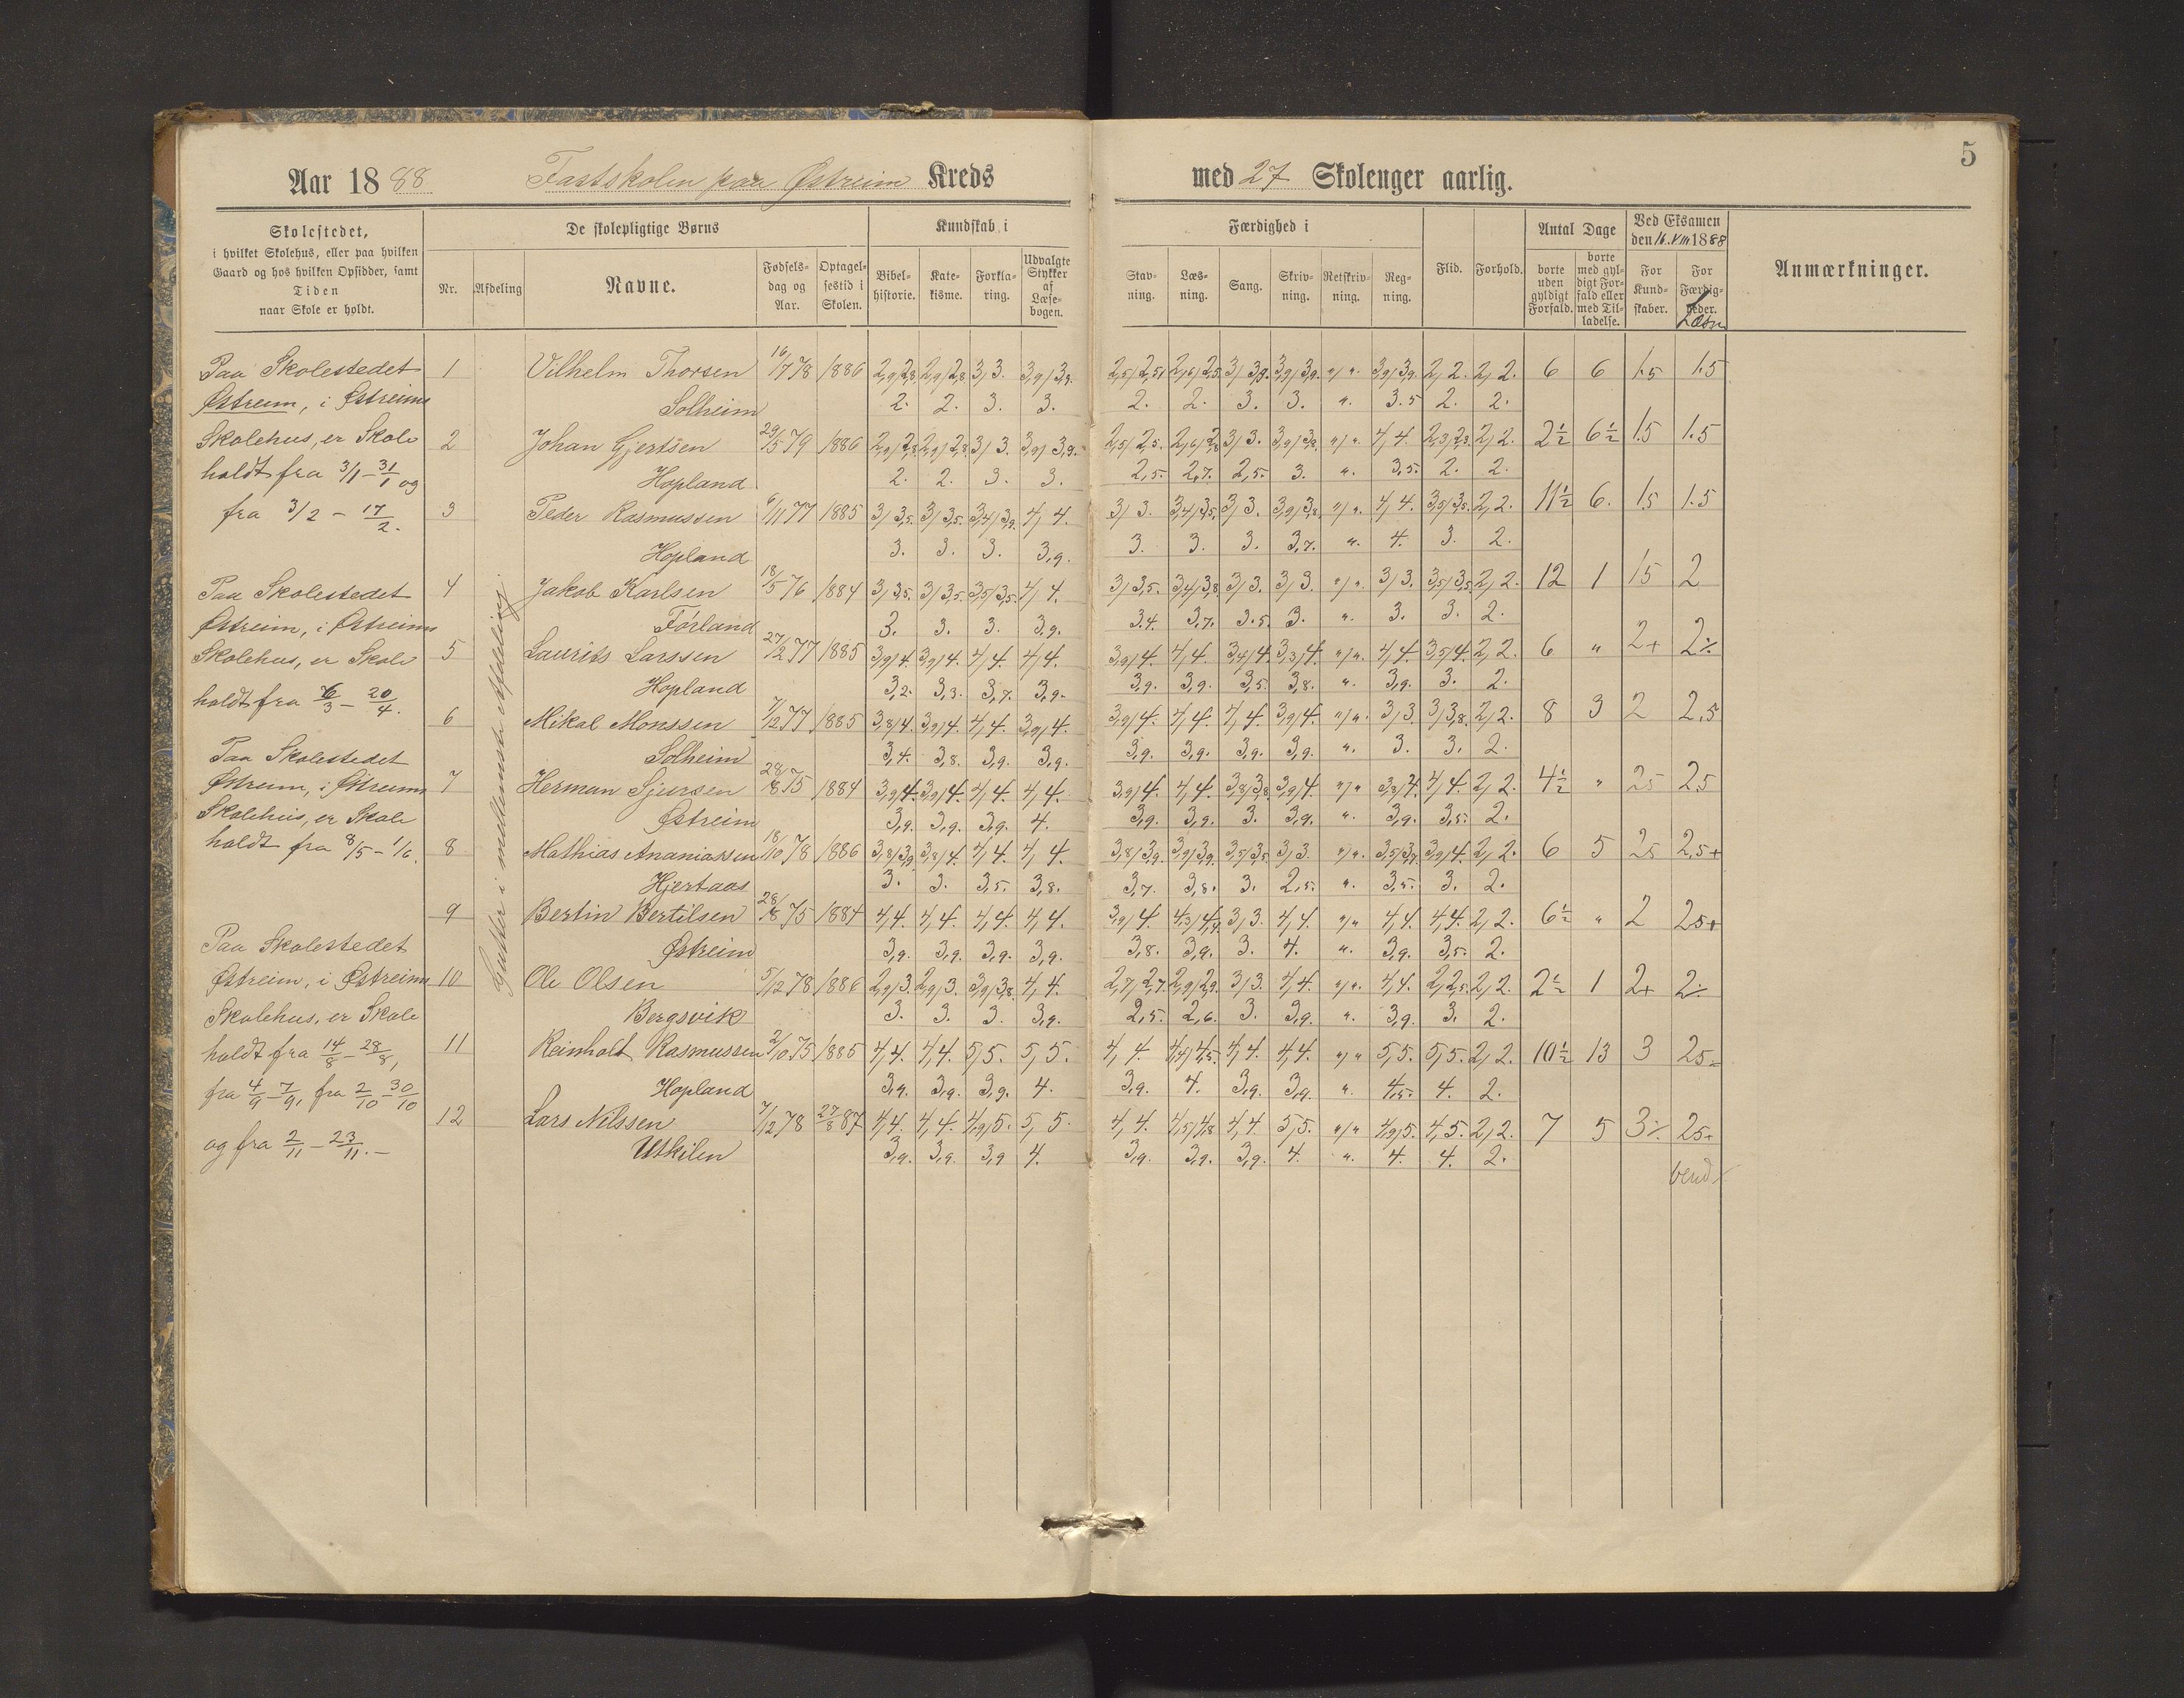 5
Aar 1888 Fastskolen paa Østreim Kreds med 27 Skolenger aarlig.
Skolestedet,
i hvilket Skolehus, eller paa hvilken
Gaard og hos hvilken Opsidder, samt
Tiden
naar Skole er holdt.
De skolepligtige Børns
Nr. Afdeling Navne.
Fødsels-
dag og
Aar.
Optagel-
sestid i
Skolen.
Kundskab i
Bibel-
historie.
Kate-
kisme.
Forkla-
ring.
Udvalgte
Stykker
af
Læse-
bogen.
Færdighed i
Stav-
ning.
Læs-
ning.
Sang.
Skriv-
ning.
Retskriv-
ning.
Reg-
ning.
Flid.
Forhold.
Antal Dage
borte
uden
gyldigt
Forfald.
borte
med gyl-
digt For-
fald eller
med Til-
ladelse.
Ved Eksamen
den 16. VIII 1888
For
Kund-
skaber.
For
Færdig-
heder.
Læsn
Anmærkninger.
Paa Skolestedet
Østreim, i Østreims
Skolehus, er Skole
holdt fra 3/1 - 31/1 og
fra 3/2 - 17/2.
Paa Skolestedet
Østreim, i Østreims
Skolehus, er Skole
holdt fra 6/3 - 20/4.
Paa Skolestedet
Østreim, i Østreims
Skolehus, er Skole
holdt fra 8/5 - 1/6.
Paa Skolestedet
Østreim, i Østreims
Skolehus, er Skole
holdt fra 14/8 - 28/8,
fra 4/9 - 7/9, fra 2/10 - 30/10
og fra 2/11 - 23/11. -
Gutter i mellemste Afdeling.
1 Vilhelm Thorsen 16/7 78 1886 2,9/2,8. 2,9/2,8. 3/3. 3,9/3,9. 2,5/2,5. 2,6/2,5. 3/3,9. 3,9/3,9. "/". 3,9/3,9. 2/2. 2/2. 6 6 1.5 1.5
Solheim 2. 2. 3. 3. 2. 2. 3. 3. ". 3.5 2. 2.
2 Johan Gjertsen 29/5 79 1886 2,9/2,8. 2,9/2,8. 3/3. 3,9/3,9. 2,5/2,5. 2,6/2,8. 3/3. 3,9/3,9. "/". 4/4. 2,3/2,3. 2/2. 2½ 6½ 1.5 1.5
Hopland 2. 2. 3. 3. 2,5. 2,7. 2,5. 3. ". 3,5. 2. 2.
3 Peder Rasmussen 6/11 77 1885 3/3,5. 3/3,5. 3,4/3,9. 4/4. 3/3. 3,4/3,5. 3/3. 3,9/3,8. "/". 4/4. 3,5/3,5. 2/2. 11½ 6. 1.5 1.5
Hopland 3. 3. 3. 3,9. 3. 3. 3. 3,7. ". 4. 3. 2.
4 Jakob Karlsen 18/5 76 1884 3/3,5. 3/3,5. 3,5/3,5. 4/4. 3/3,5. 3,4/3,8. 3/3. 3/3. "/". 3/3. 3,5/3,5. 2/2. 12 1 1.5 2
Førland 3. 3. 3. 3,9. 3.4. 3,7. 3.5. 3. ". 3. 3. 2.
5 Laurits Larssen 27/2 77 1885 3,9/4. 3,9/4. 4/4. 4/4. 3,9/4. 4/4. 3,4/4. 3,3/4. "/". 4/4. 3,5/4. 2/2. 6 " 2+ 2÷
Hopland 3,2. 3,3. 3,7. 3,9. 3,9. 3,9. 3,5. 3,8. ". 3,9. 3. 2.
6 Mikal Monssen 7/2 77 1885 3,8/4. 3,9/4. 4/4. 3,9/4. 3,9/4. 4/4. 4/4. 3,9/4. "/". 3/3. 3/3,8. 2/2. 8 3 2 2,5
Solheim 3,4. 3,8. 3,9. 3,9. 3,9. 3,9. 3,9. 3,9. ". 3. 3. 2.
7 Herman Sjursen 28/8 75 1884 3,9/4. 3,9/4. 4/4. 4/4. 3,9/4. 4/4. 3,8/3,8. 3,9/4. "/" 3,8/4. 4/4. 2/2. 4½ " 25 25
Østreim 3,9. 3,9. 3,9. 4. 3,9. 3,9. 3. 3,9. ". 3,9. 3,5. 2.
8 Mathias Ananiassen 18/10 78 1886 3,8/3,9. 3,8/4. 4/4. 4/4. 3,8/3,9. 3,9/3,9. 3,5/3,5. 3/3. "/". 3,5/3,7. 3,9/4. 2/2. 6 5 25 2,5+
Hjertaas 3. 3. 3,5. 3,8. 3,7. 3,8. 3. 2,5. ". 3,5. 3. 2.
9 Bertin Bertilsen 28/8 75 1884 4/4. 4/4. 4/4. 4/4. 3,9/4. 4,3/4,4. 3/3. 4/4. "/" 4/4. 4/4. 2/2. 6½ " 2 25+
Østreim 3,9. 3,9. 3,9. 3,9. 3,8. 3,9. 3. 4. ". 3,9. 3,5. 2.
10 Ole Olsen 5/12 78 1886 2,9/3. 2,9/3. 3,9/3,8. 4/4. 2,7/2,7. 2,9/2,9. 3/3. 4/4. "/". 4/4. 2/2,5. 2/2. 2½ 1 2+ 2÷
Bergsvik 3. 3. 3. 3,9. 2,5. 2,6. 3. 3,9. ". 3,9. 3. 2.
11 Reinholt Rasmussen 2/10 75 1885 4/4. 4/4. 5/5. 5/5. 4/4. 4,4/4,5. 4/4. 4/4. "/" 5/5. 5/5. 2/2. 10½ 13 3 25=
Hopland 3,9. 3,9. 3,9. 4. 3,9. 4. 3,9. 3,9. ". 4,5. 4. 2.
12 Lars Nilssen 7/12 78 27/8 87 4/4. 4/4. 4,9/5. 5/5. 4/4. 4,5/4,8 4/4. 5/5. "/" 4,9/5. 4/5. 2/2. 7 5 3÷ 25+
Utkilen 3,9. 3,9. 3,9 4. 3,9. 3,9. 3,9. 4. ". 4. 4. 2.
vend